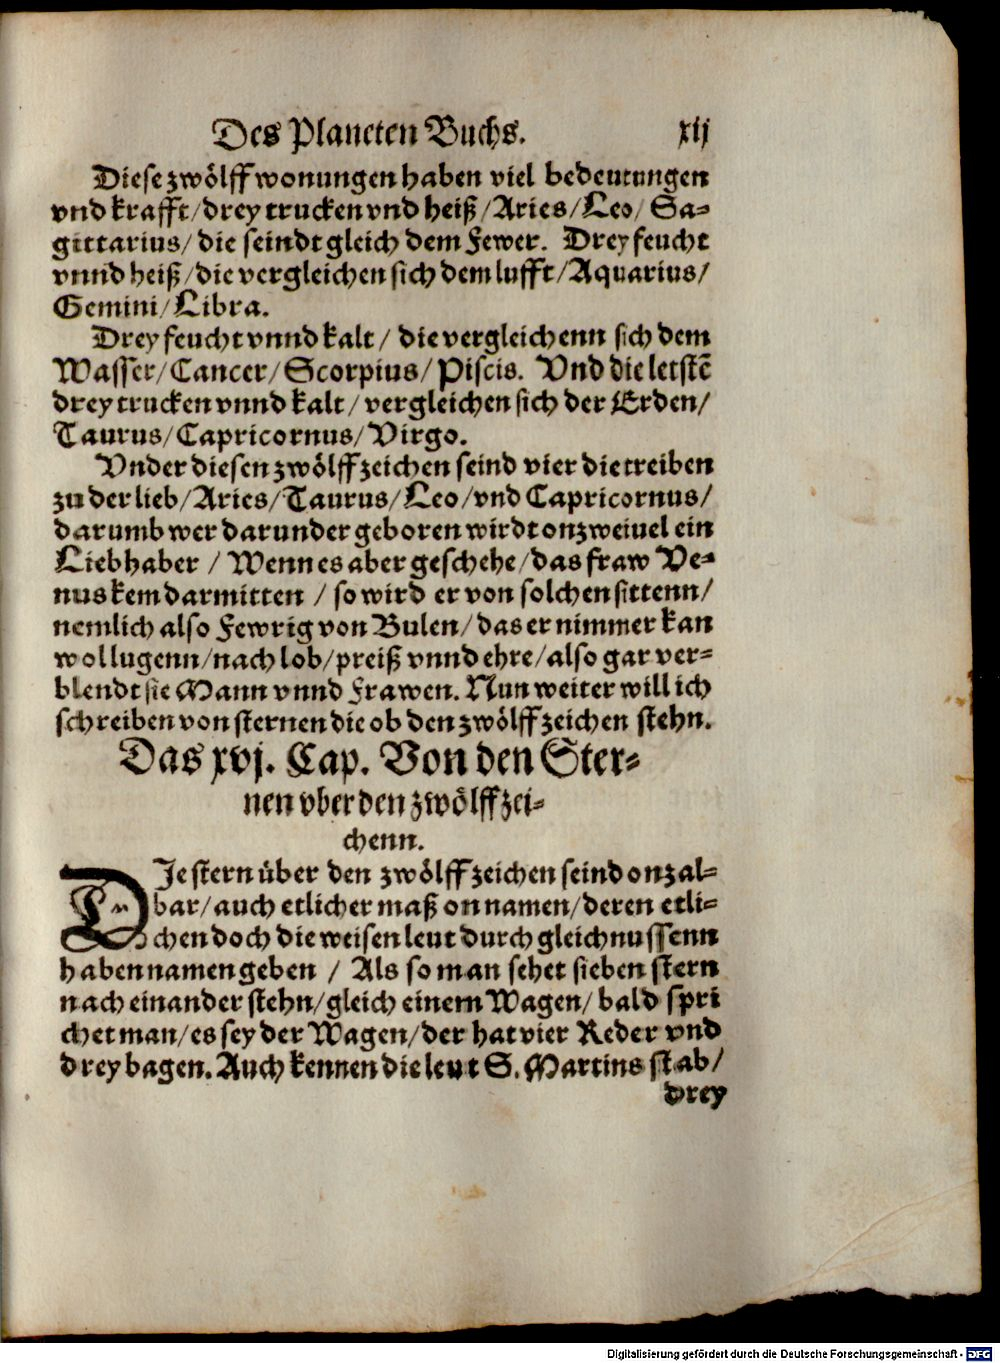 Des Planeten Buchs. xij
Diese zwölff wonungen haben viel bedeutungen
vnd krafft/drey trucken vnd heiß/Aries/Leo/ Sa-
gittarius/ die seindt gleich dem Fewer. Drey feucht
vnnd heiß/die vergleichen sich dem lufft/Aquarius/
Gemini/Libra.
Drey feucht vnnd kalt/ die vergleichenn sich dem
Wasser/Cancer/Scorpius/Piscis. Vnd die letstē
drey trucken vnnd kalt/vergleichen sich der Erden/
Taurus/Capricornus/Virgo.
Vnder diesen zwölff zeichen seind vier die treiben
zu der lieb/Aries/Taurus/Leo/vnd Capricornus/
darumb wer darunder geboren wirdt onzweiuel ein
Liebhaber / Wenn es aber geschehe/das fraw Ve-
nus kem darmitten / so wird er von solchen sittenn/
nemlich also Fewrig von Bulen/das er nimmer kan
wol lugenn/nach lob/preiß vnnd ehre/also gar ver-
blendt sie Mann vnnd Frawen. Nun weiter will ich
schreiben von sternen die ob den zwölff zeichen stehn.
Das xvj. Cap. Von den Ster-
nen vber den zwölff zei-
chenn.
DJe stern über den zwölff zeichen seind onzal-
bar/auch etlicher maß on namen/deren etli-
chen doch die weisen leut durch gleichnussenn
haben namen geben / Als so man sehet sieben stern
nach einander stehn/gleich einem Wagen/bald spri
chet man/es sey der Wagen/der hat vier Reder vnd
drey bagen. Auch kennen die leut S. Martins stab/
drey
Digitalisierung gefördert durch die Deutsche Forschungsgemeinschaft - DFG